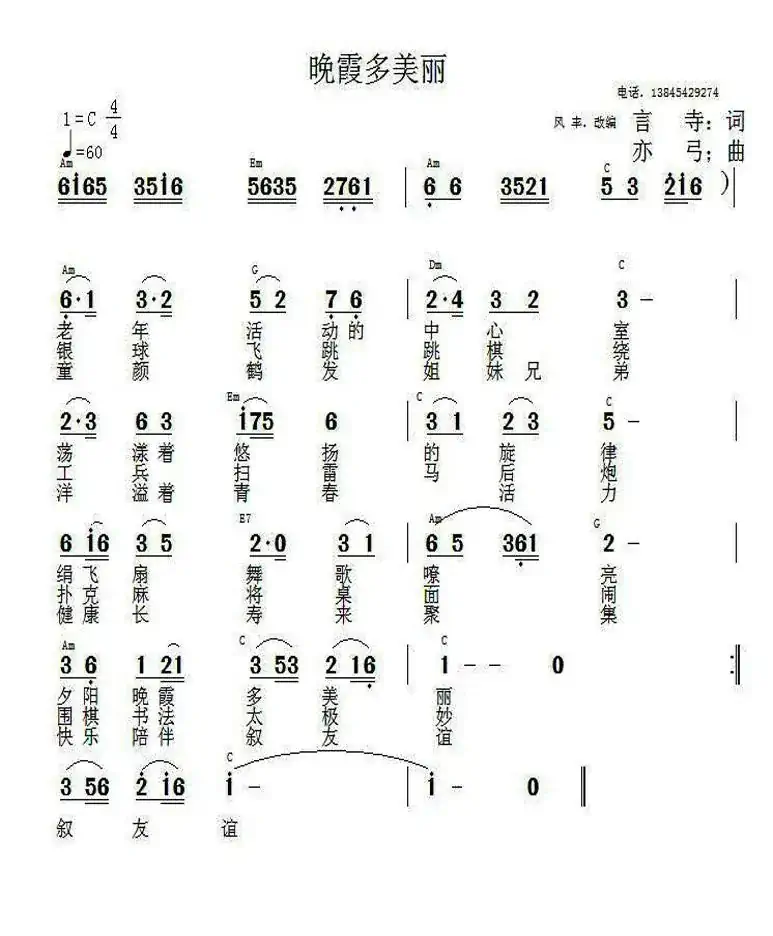 晚霞多美丽
电话．13845429274
1=C 4/4
风 丰．改编 言 寺：词
♩=60
亦 弓；曲
Am Em Am C
6165 3516 5635 2761 | 6 6 3521 5 3 216 ) |
Am G Dm C
6·1 3·2 5 2 7 6 | 2·4 3 2 3 - |
老 年 活 动 的 中 心 室
银 球 飞 跳 跳 棋 绕
童 颜 鹤 发 姐 妹 兄 弟
Em C C
2·3 6 3 175 6 | 3 1 2 3 5 - |
荡 漾 着 悠 扬 的 旋 律
工 兵 扫 雷 马 后 炮
洋 溢 着 青 春 活 力
E7 Am G
6 16 3 5 2·0 3 1 | 6 5 361 2 - |
绢 飞 扇 舞 歌 嘹 亮
扑 克 麻 将 桌 面 闹
健 康 长 寿 来 聚 集
Am C C
3 6 1 21 3 53 2 16 | 1 - - 0 :‖
夕 阳 晚 霞 多 美 丽
围 棋 书 法 太 极 妙
快 乐 陪 伴 叙 友 谊
C
3 56 2 16 1 - | 1 - 0 ‖
叙 友 谊